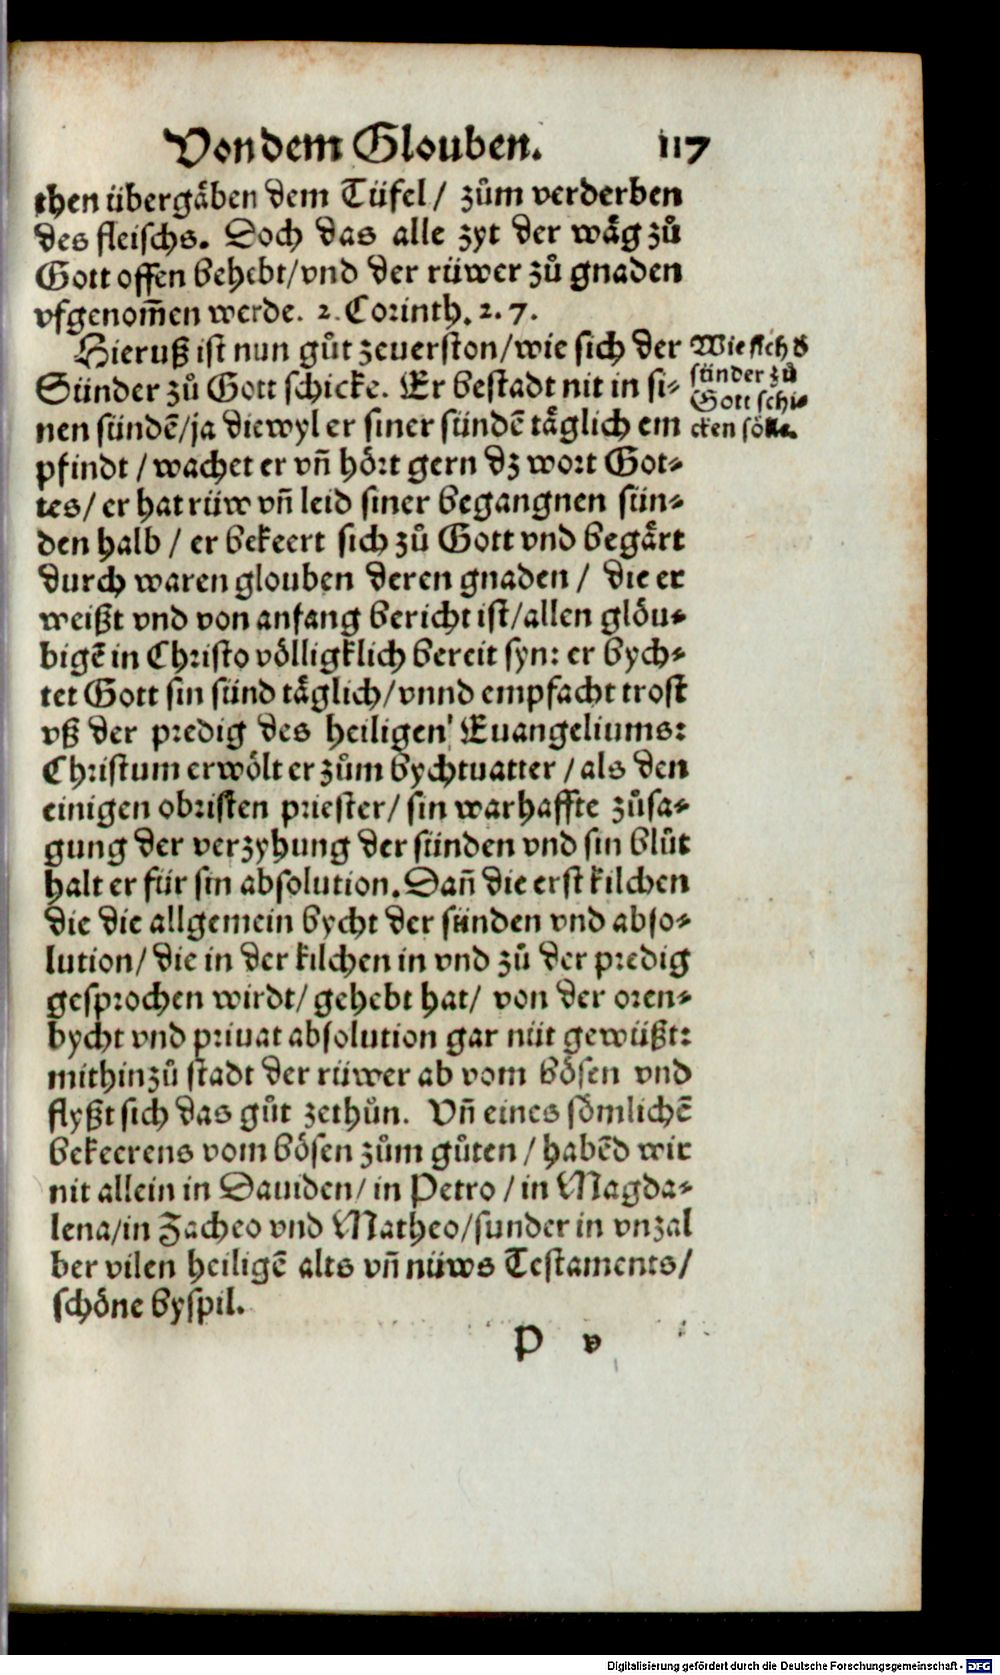 Von dem Glouben. 117
then übergåben dem Tüfel / zům verderben
des fleischs. Doch das alle zyt der wåg zů
Gott offen behebt/vnd der rüwer zů gnaden
vfgenom̃en werde. 2. Corinth. 2. 7.
Hieruß ist nun gůt zeuerston/wie sich der
Sünder zů Gott schicke. Er bestadt nit in si-
nen sündẽ/ja diewyl er siner sündẽ tåglich em
pfindt / wachet er vñ hört gern dz wort Got-
tes/ er hat rüw vñ leid siner begangnen sün-
den halb / er bekeert sich zů Gott vnd begårt
durch waren glouben deren gnaden / die er
weißt vnd von anfang bericht ist/allen glöu-
bigẽ in Christo völligklich bereit syn: er bych-
tet Gott sin sünd tåglich/vnnd empfacht trost
vß der predig des heiligen Euangeliums:
Christum erwölt er zům bychtuatter / als den
einigen obristen priester/ sin warhaffte zůsa-
gung der verzyhung der sünden vnd sin blůt
halt er für sin absolution. Dañ die erst kilchen
die die allgemein bycht der sünden vnd abso-
lution/ die in der kilchen in vnd zů der predig
gesprochen wirdt/ gehebt hat/ von der oren-
bycht vnd priuat absolution gar nüt gewüßt:
mithinzů stadt der rüwer ab vom bösen vnd
flyßt sich das gůt zethůn. Vñ eines sömlichẽ
bekeerens vom bösen zům gůten / habẽd wir
nit allein in Dauiden/ in Petro / in Magda-
lena/in Zacheo vnd Matheo/sunder in vnzal
ber vilen heiligẽ alts vñ nüws Testaments/
schöne byspil.
P v
Wie sich d
sünder zů
Gott schi-
cken sölle.
Digitalisierung gefördert durch die Deutsche Forschungsgemeinschaft - DFG